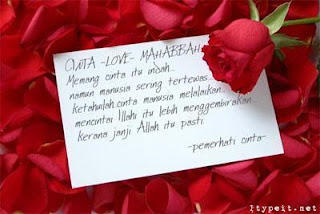 CINTA -LOVE- MAHABBAH
Memang cinta itu indah..
namun manusia sering tertewas..
ketahuilah..cinta manusia melalaikan..
mencintai Illahi itu lebih menggembirakan
kerana janji Allah itu pasti
-pemerhati cinta-
Itypeit.net